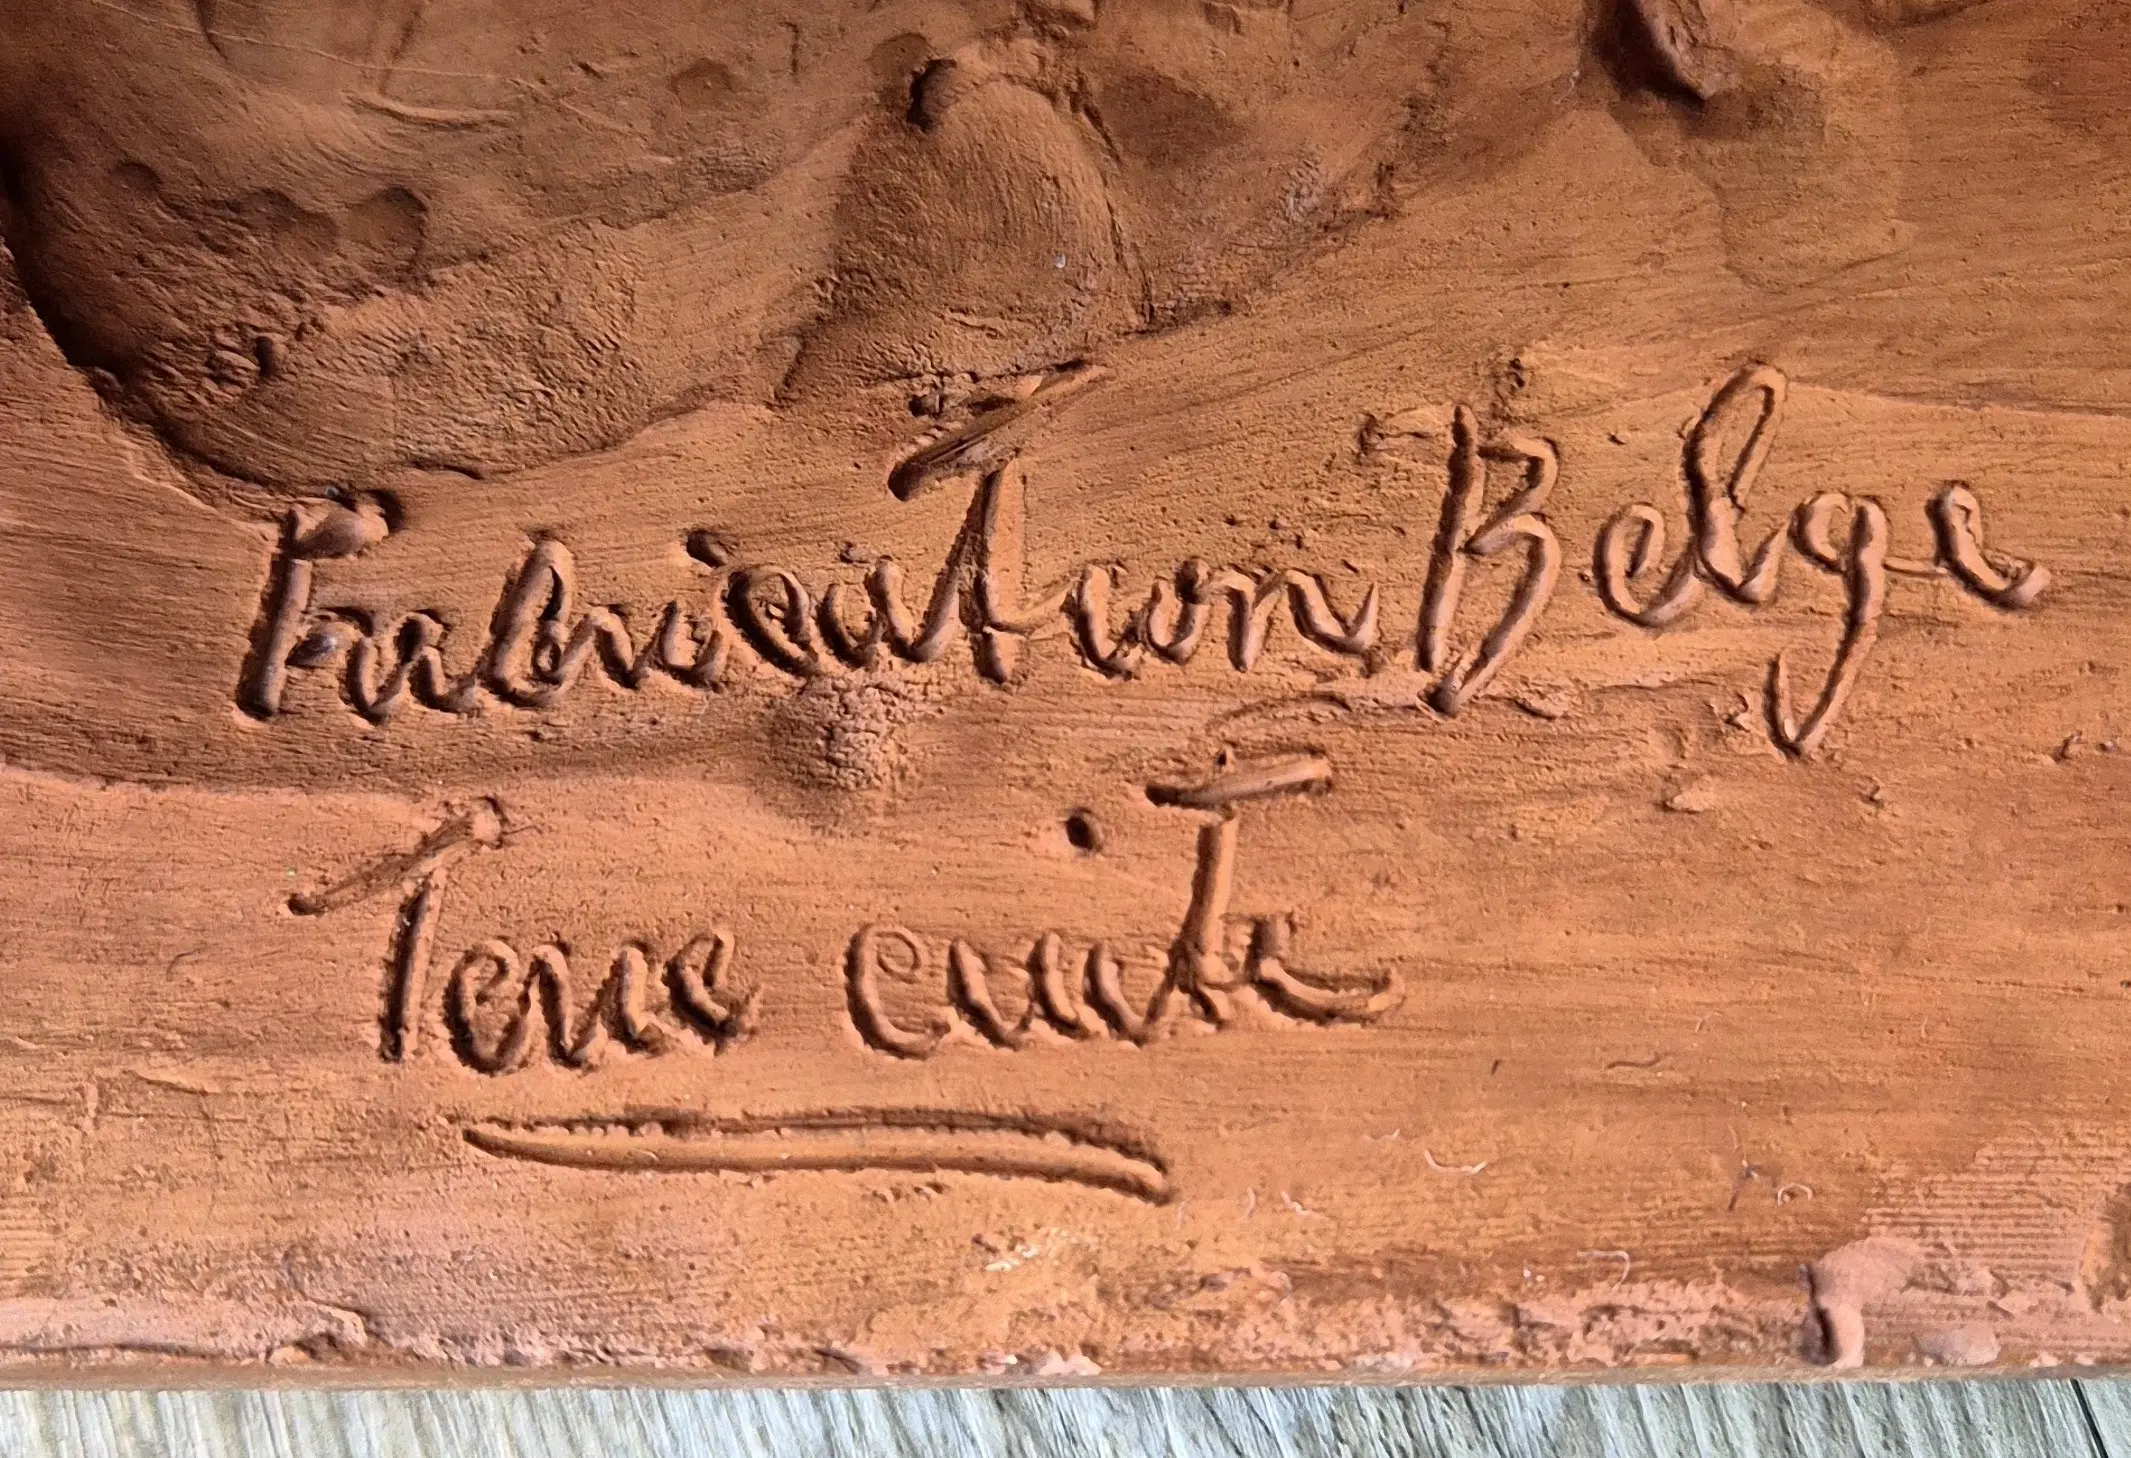 Fabrication Belge
Terre cuite